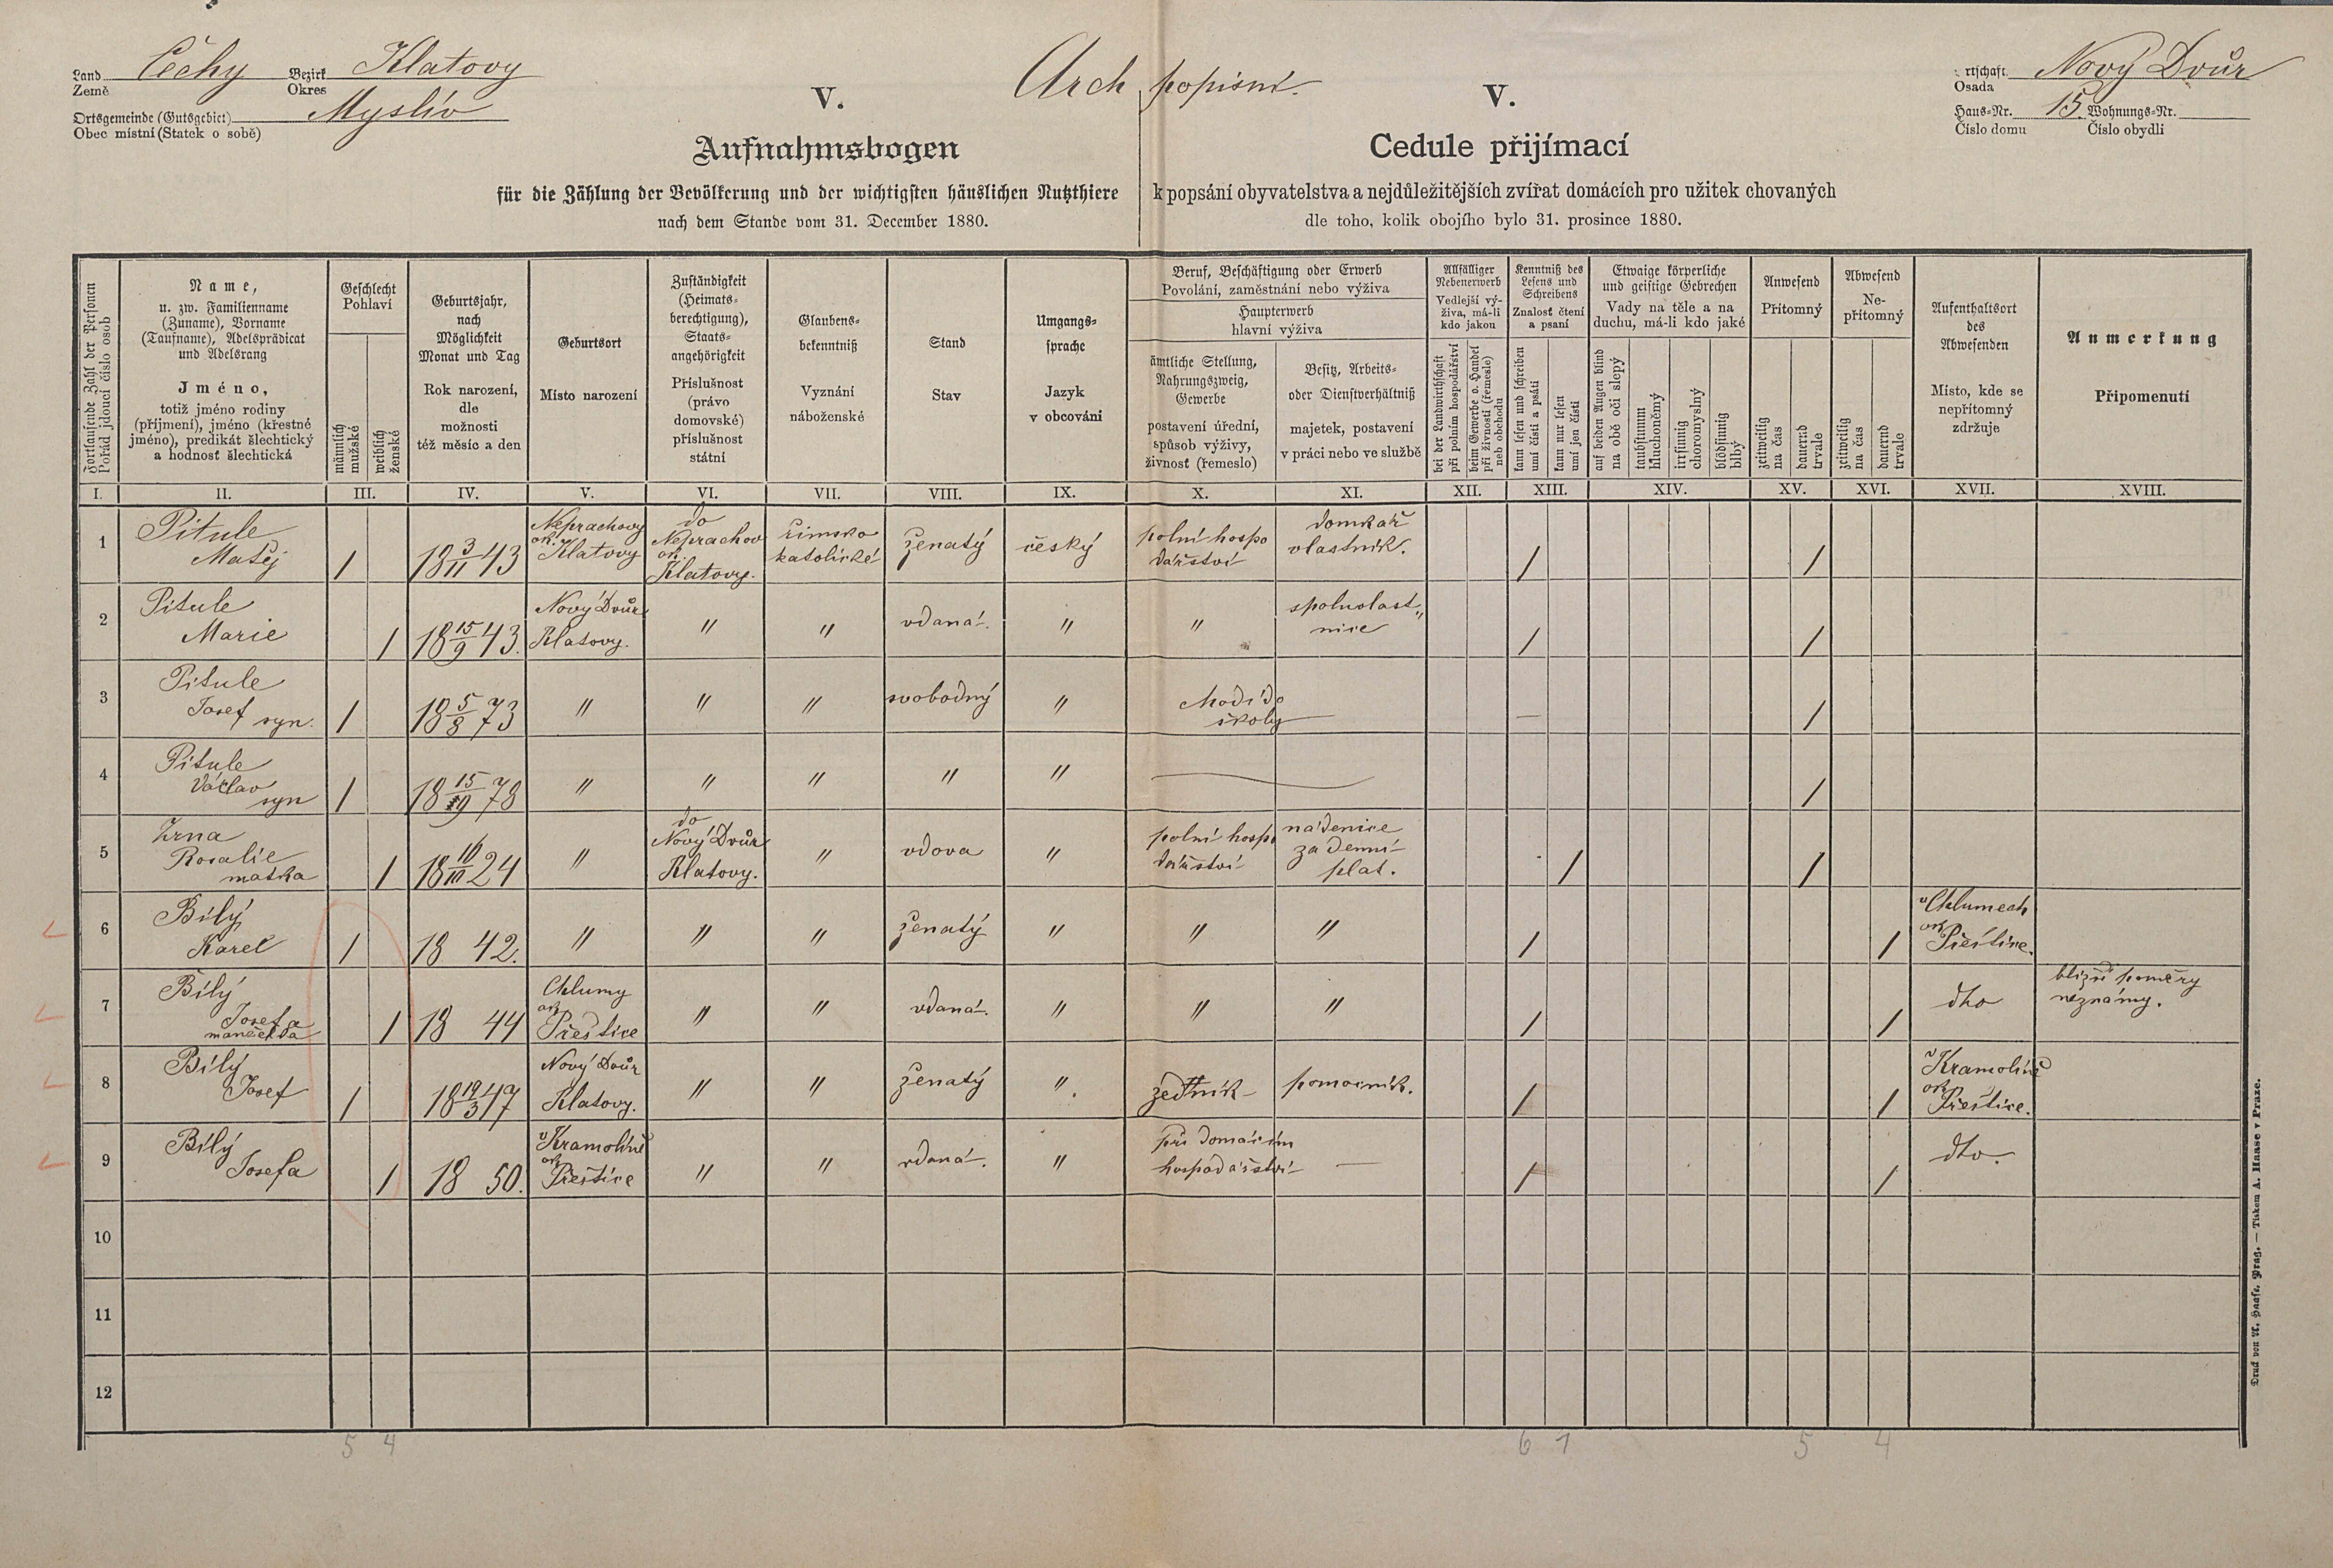 Land Čechy Bezirk Klatovy
Země Okres
Ortsgemeinde (Gutsgebiet) Myslív
Obec místní (Statek o sobě)
Arch popisní.
Nový Dvůr
Osada
Haus-Nr. 15. Wohnungs-Nr.
Číslo domu Číslo obydlí
V.
Aufnahmsbogen
für die Zählung der Bevölkerung und der wichtigsten häuslichen Nutzthiere
nach dem Stande vom 31. December 1880.
V.
Cedule přijímací
k popsání obyvatelstva a nejdůležitějších zvířat domácích pro užitek chovaných
dle toho, kolik obojího bylo 31. prosince 1880.
Fortlaufende Zahl der Personen
Pořád jdoucí číslo osob
Name,
u. zw. Familienname
(Zuname), Vorname
(Taufname), Adelsprädicat
und Adelsrang
Jméno,
totiž jméno rodiny
(příjmení), jméno (křestné
jméno), predikát šlechtický
a hodnosť šlechtická
Geschlecht
Pohlaví
männlich
mužské
weiblich
ženské
Geburtsjahr,
nach
Möglichkeit
Monat und Tag
Rok narození,
dle
možnosti
též měsíc a den
Geburtsort
Místo narození
Zuständigkeit
(Heimats-
berechtigung),
Staats-
angehörigkeit
Příslušnost
(právo
domovské)
příslušnost
státní
Glaubens-
bekenntniß
Vyznání
náboženské
Stand
Stav
Umgangs-
sprache
Jazyk
v obcování
Beruf, Beschäftigung oder Erwerb
Povolání, zaměstnání nebo výživa
Haupterwerb
hlavní výživa
ämtliche Stellung,
Nahrungszweig,
Gewerbe
postavení úřední,
spůsob výživy,
živnost (řemeslo)
Besitz, Arbeits-
oder Dienstverhältniß
majetek, postavení
v práci nebo ve službě
Allfälliger
Nebenerwerb
Vedlejší vý-
živa, má-li
kdo jakou
bei der Landwirthschaft
při polním hospodářství
beim Gewerbe o. Handel
při živnosti (řemesle)
neb obchodu
Kenntniß des
Lesens und
Schreibens
Znalosť čtení
a psaní
kann lesen und schreiben
umí čísti a psáti
kann nur lesen
umí jen čísti
Etwaige körperliche
und geistige Gebrechen
Vady na těle a na
duchu, má-li kdo jaké
auf beiden Augen blind
na obě oči slepý
taubstumm
hluchoněmý
irrsinnig
choromyslný
blödsinnig
blbý
Anwesend
Přítomný
zeitweilig
na čas
dauernd
trvale
Abwesend
Ne-
přítomný
zeitweilig
na čas
dauernd
trvale
Aufenthaltsort
des
Abwesenden
Místo, kde se
nepřítomný
zdržuje
Anmerkung
Připomenutí
I. II. III. IV. V. VI. VII. VIII. IX. X. XI. XII. XIII. XIV. XV. XVI. XVII. XVIII.
1 Pitule Matěj / 18 3/11 43 Neprachovy ok. Klatovy do Neprachov ok. Klatovy. římsko katolické ženatý český polní hospodářství domkař vlastník. / /
2 Pitule Marie / 18 15/9 43. Nový Dvůr Klatovy. " " vdaná. " " spoluvlast„nice / /
3 Pitule Josef syn. / 18 5/8 73 " " " svobodný " chodí do školy — — /
4 Pitule Václav syn / 18 15/9 78 " " " " " — /
5 Zrna Rosalie matka / 18 16/10 24 " do Nový Dvůr Klatovy. " vdova " polní hospodářství nádenice za denní plat. / /
6 Bílý Karel / 18 42. " " " ženatý " " " / / v Chlumech ok Přeštice.
7 Bílý Josefa manželka / 18 44 Chlumy ok Přeštice " " vdaná. " " " / / dto bližší poměry neznámy.
8 Bílý Josef / 18 19/3 47 Nový Dvůr Klatovy. " " ženatý ". zedník pomocník. / / v Kramolíně ok Přeštice.
9 Bílý Josefa / 18 50. v Kramolíně ok Přeštice " " vdaná. " při domácím hospodářství — / / dto.
10
11
12
5 4 6 1 5 4
Druck von A. Haase, Prag. — Tiskem A. Haase v Praze.